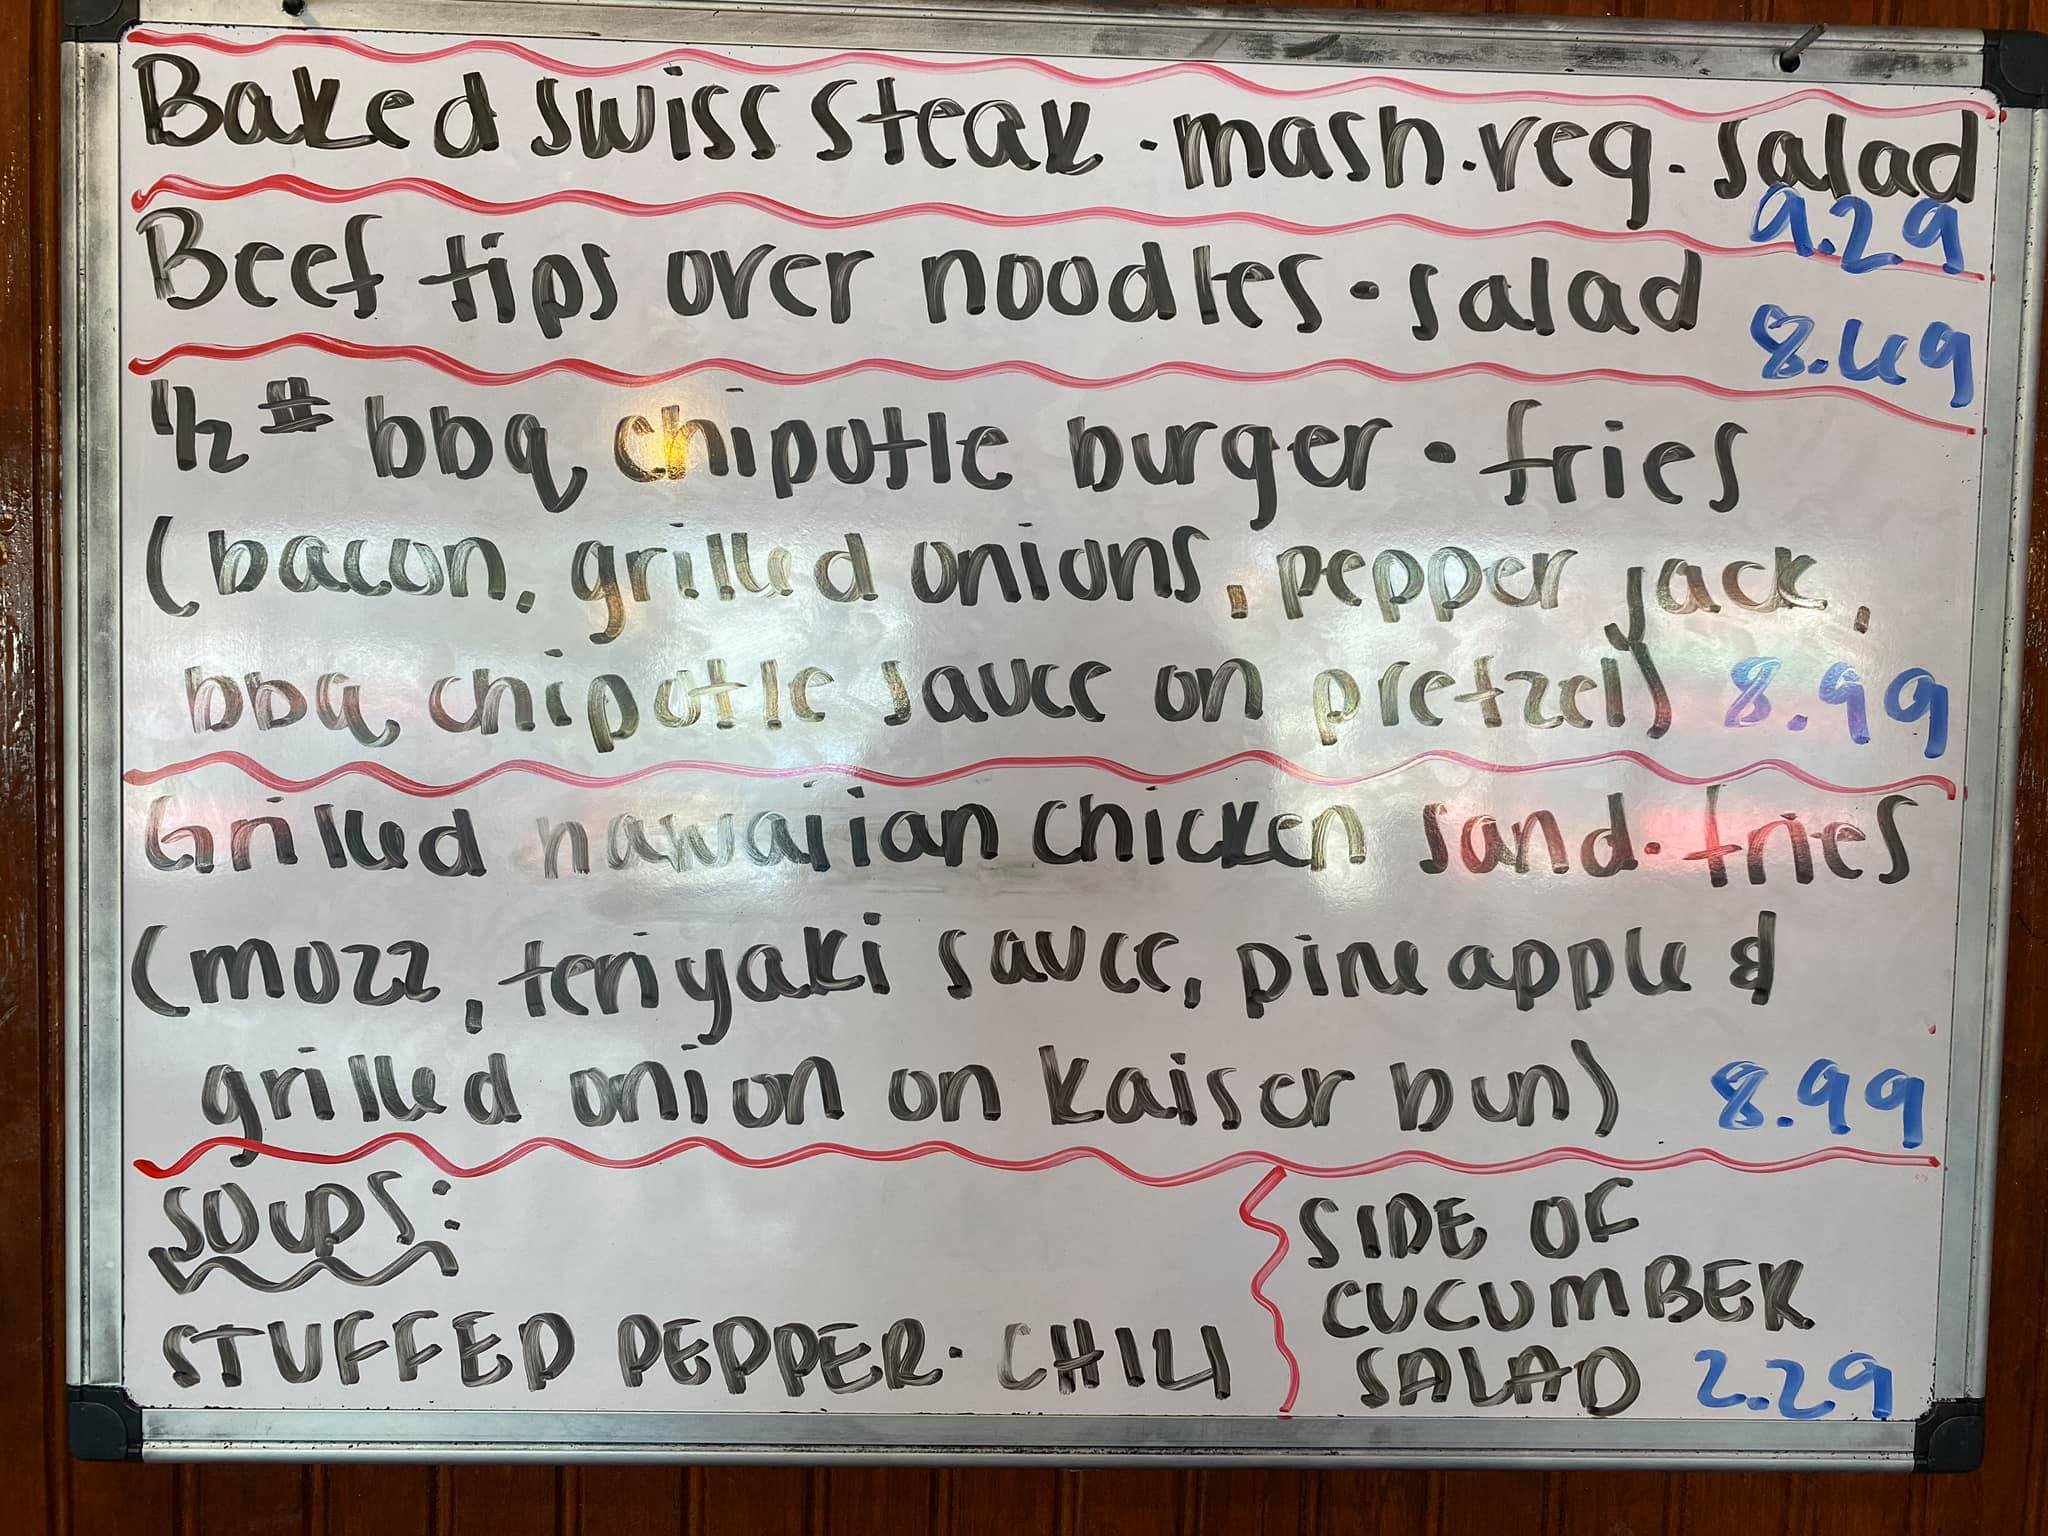 Baked swiss steak · mash · veg · salad
9.29
Beef tips over noodles · salad
8.49
1/2 # bbq chipotle burger · fries
(bacon, grilled onions, pepper jack,
bbq chipotle sauce on pretzel) 8.99
Grilled hawaiian chicken sand · fries
(mozz, teriyaki sauce, pineapple &
grilled onion on kaiser bun) 8.99
SOUPS:
STUFFED PEPPER · CHILI
SIDE OF
CUCUMBER
SALAD 2.29